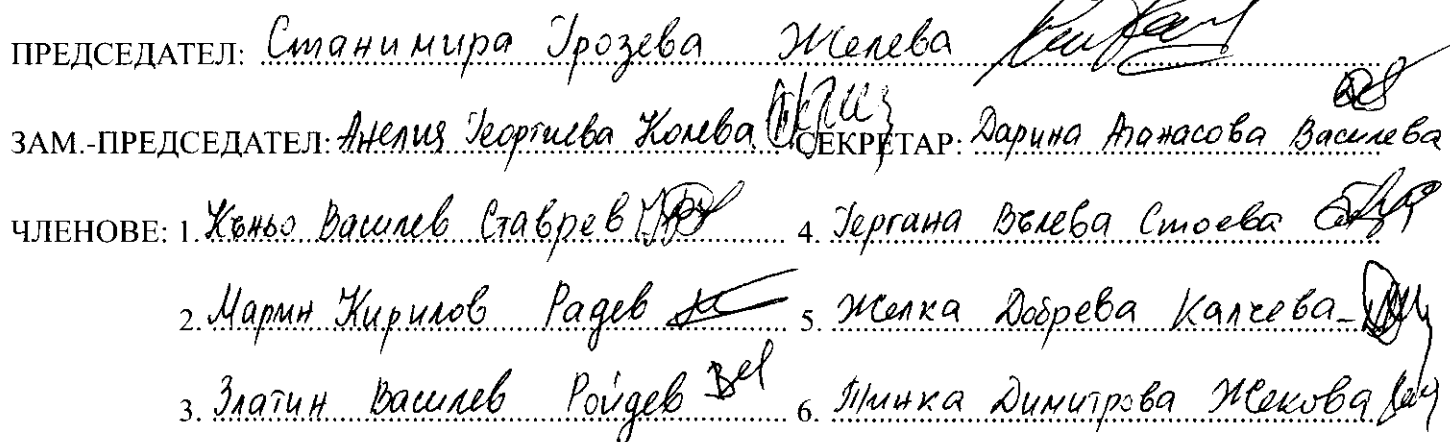 ПРЕДСЕДАТЕЛ: Станимира Грозева Желева
ЗАМ.-ПРЕДСЕДАТЕЛ: Анелия Георгиева Колева СЕКРЕТАР: Дарина Атанасова Василева
ЧЛЕНОВЕ: 1. Къньо Василев Ставрев 4. Гергана Вълева Стоева
2. Марин Кирилов Радев 5. Желка Добрева Калчева
3. Златин Василев Ройдев 6. Тинка Димитрова Жекова